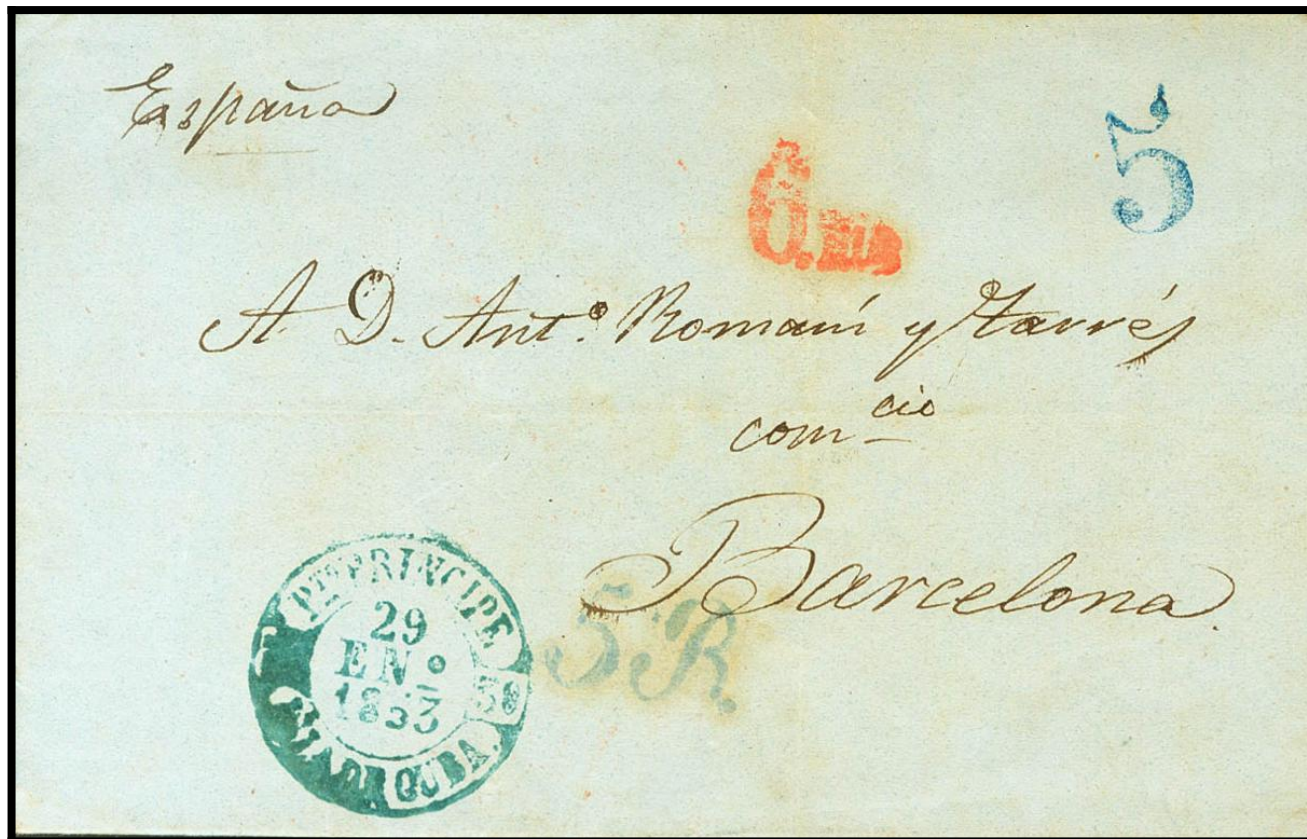 España
5
6. RLS
A D. Ant.º Romaní y Tarrés
com cio
Barcelona
5 R.
PTO PRINCIPE
29
EN.
1853
CUBA